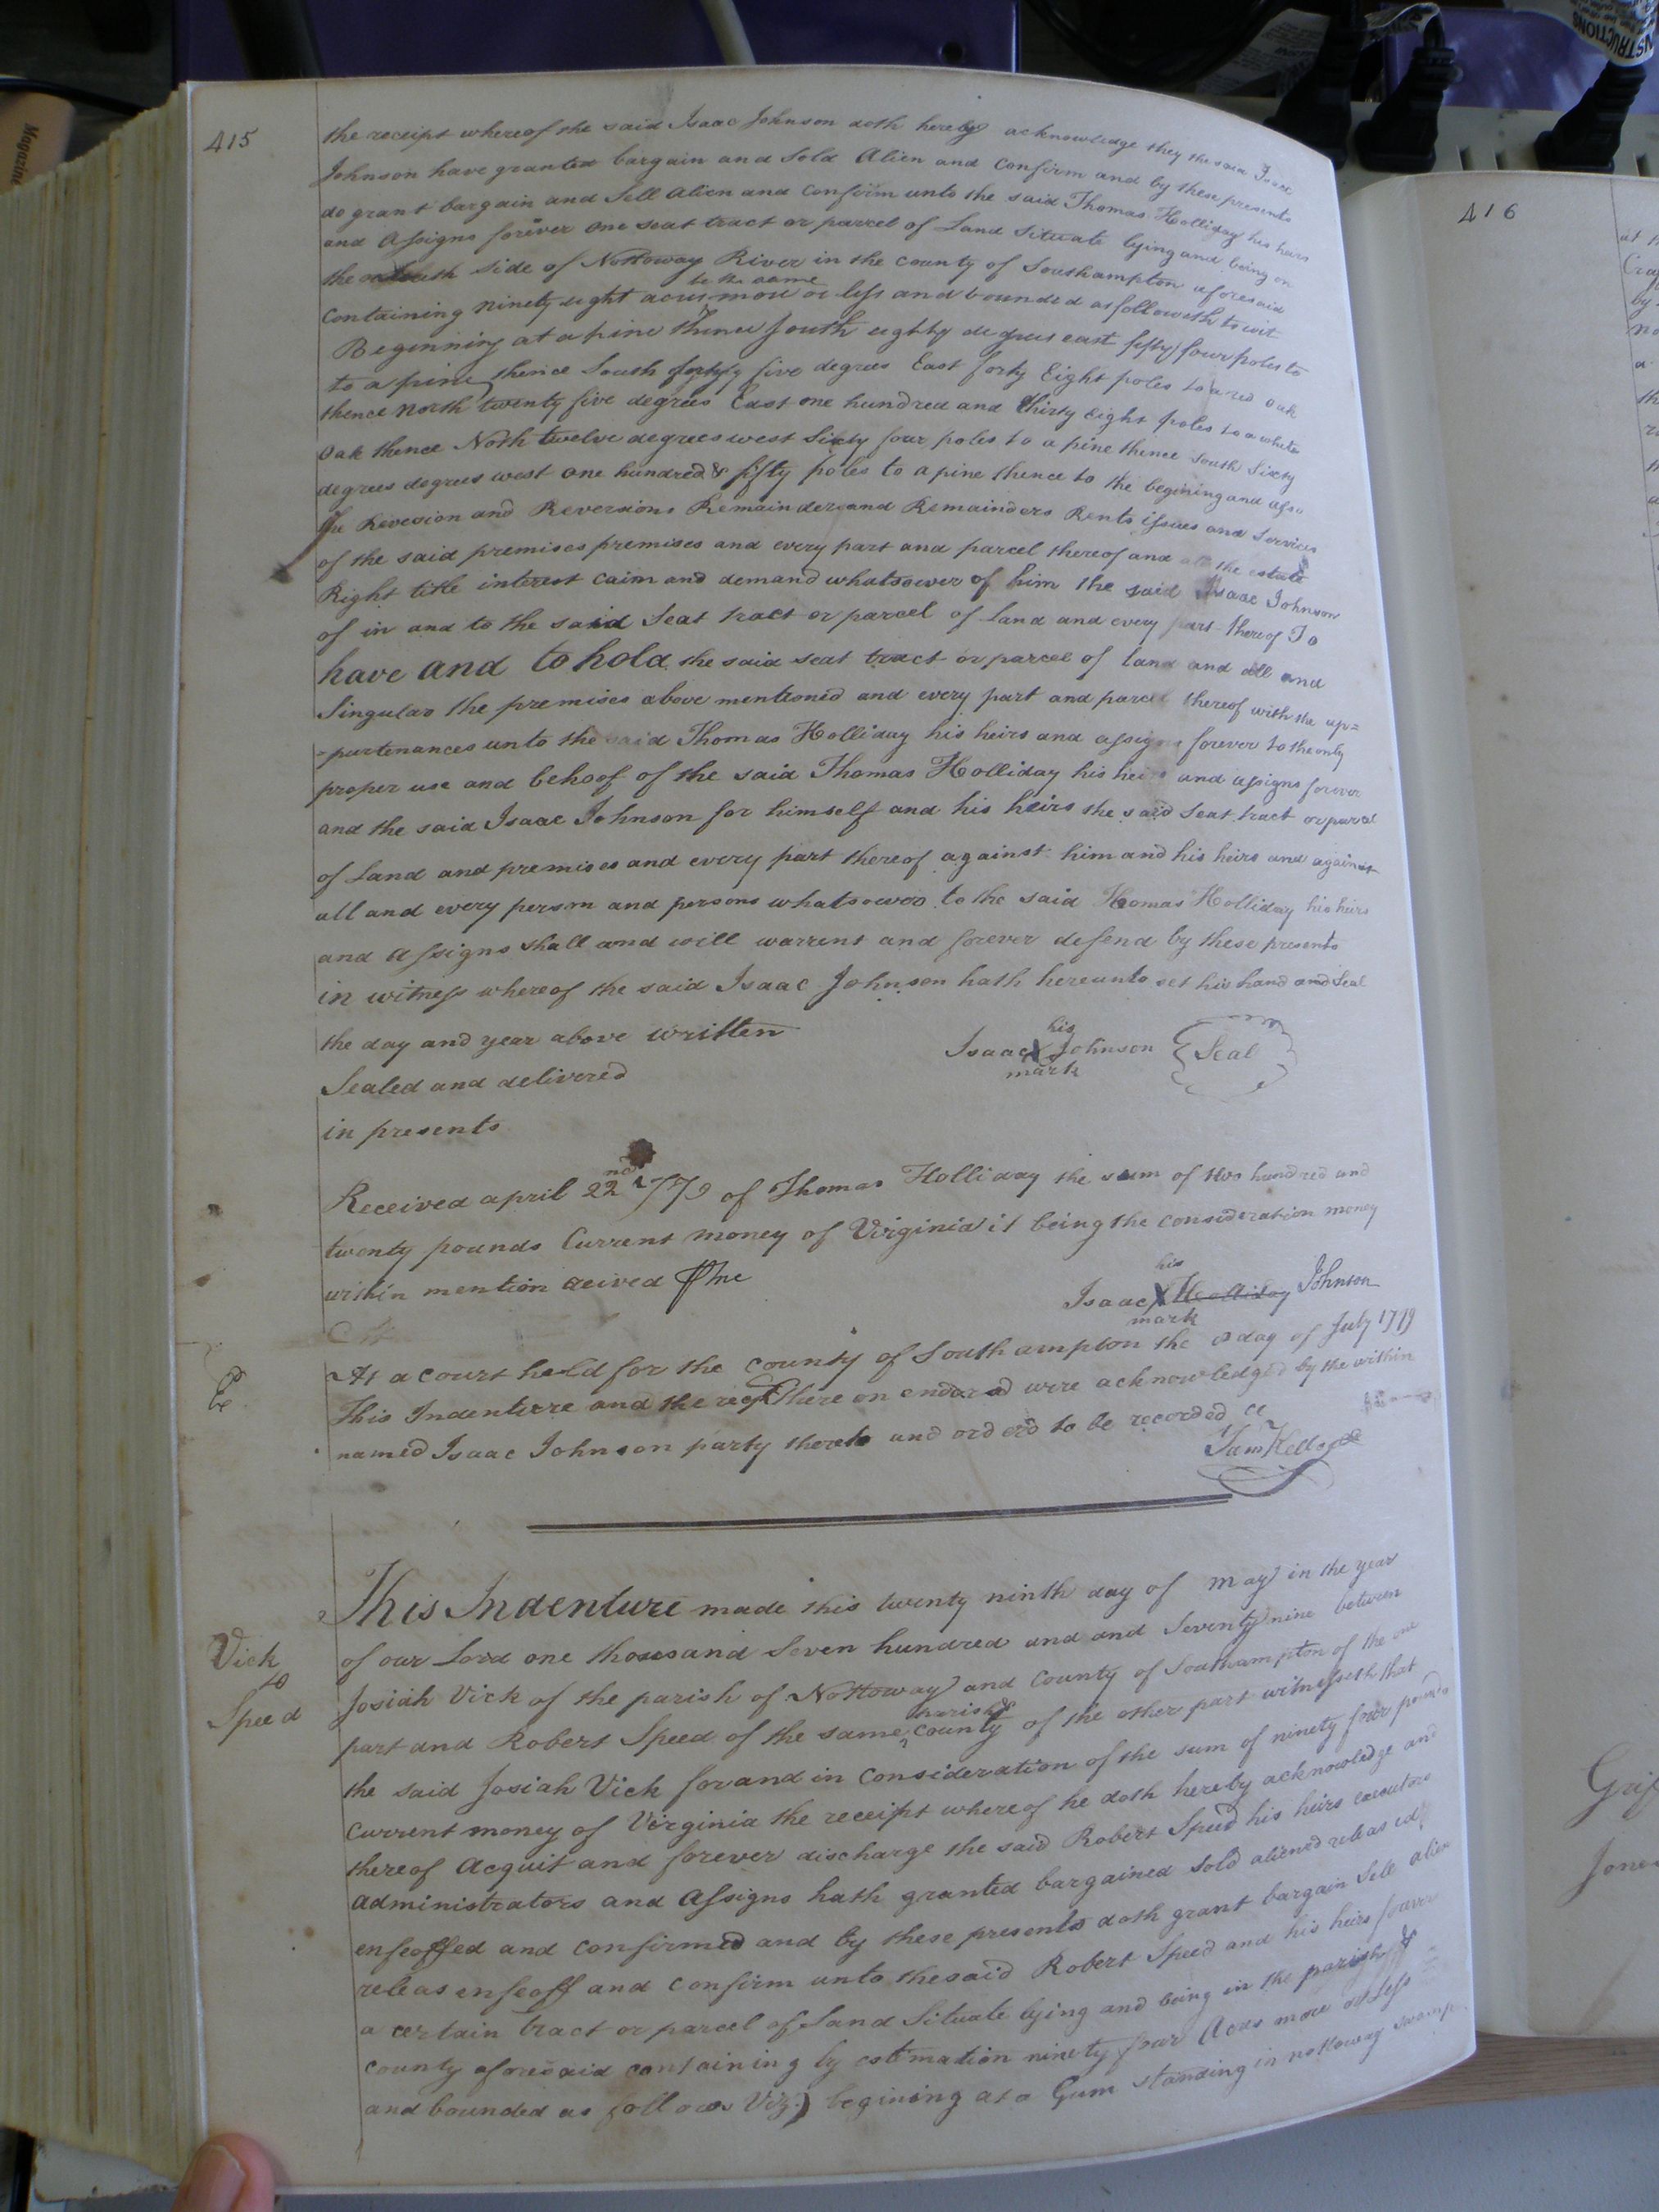 415
the receipt whereof the said Isaac Johnson doth hereby acknowledge they the said Isaac
Johnson have granted bargain and Sold Alien and Confirm and by these presents
do grant bargain and Sell Alien and Confirm unto the said Thomas Holliday his heirs
and Assigns forever one seat tract or parcel of Land Situate lying and being on
the South side of Nottoway River in the county of Southampton aforesaid
to the same
Containing ninety eight acres more or less and bounded as followeth to wit
Beginning at a pine thence South eighty degrees east fifty four poles to
to a pine thence South forty five degrees East forty Eight poles to a red oak
thence North twenty five degrees East one hundred and thirty eight poles to a white
Oak thence North twelve degrees west Sixty four poles to a pine thence South Sixty
degrees degrees west one hundred & fifty poles to a pine thence to the begining and also
the Revesion and Reversions Remainder and Remainders Rents issues and Services
of the said premises premises and every part and parcel thereof and all the estate
Right title interest caim and demand whatsoever of him the said Isaac Johnson
of in and to the said Seat tract or parcel of land and every part thereof To
have and to hold the said seat tract or parcel of land and all and
Singular the premises above mentioned and every part and parcel thereof with the ap=
=purtenances unto the said Thomas Holliday his heirs and assigns forever to the only
proper use and behoof of the said Thomas Holliday his heirs and assigns forever
and the said Isaac Johnson for himself and his heirs the said Seat tract or parcel
of Land and premises and every part thereof against him and his heirs and against
all and every person and persons whatsoever to the said Thomas Holliday his heirs
and Assigns shall and will warrent and forever defend by these presents
in witness whereof the said Isaac Johnson hath hereunto set his hand and Seal
the day and year above written
his
Isaac X Johnson Seal
mark
Sealed and delivered
in presents
Received april 22nd 1779 of Thomas Holliday the sum of two hundred and
twenty pounds Current money of Virginia it being the consideration money
within mention
his
Isaac X Holliday Johnson
mark
At a court held for the county of Southampton the 8 day of July 1779
This Indenture and the rect there on endorsd were acknowledged by the within
named Isaac Johnson party thereto and orderd to be recorded
Ex
Vick
to
Speed
This Indenture made this twenty ninth day of may in the year
of our Lord one thousand Seven hundred and and Seventy nine between
Josiah Vick of the parish of Nottoway and County of Southampton of the one
parish &
part and Robert Speed of the same county of the other part witnesseth that
the said Josiah Vick for and in Consideration of the sum of ninety four pounds
Current money of Virginia the receipt whereof he doth hereby acknowledge and
thereof Acquit and forever discharge the said Robert Speed his heirs executors
administrators and Assigns hath granted bargained Sold aliened released
enfeoffed and confirmed and by these presents doth grant bargain Sell alien
releas enfeoff and confirm unto the said Robert Speed and his heirs forever
a certain tract or parcel of Land Situate lying and being in the parish &
county aforesaid containing by estimation ninety four Acres more or Less
and bounded as follows Viz.) begining at a Gum standing in nottoway swamp
416